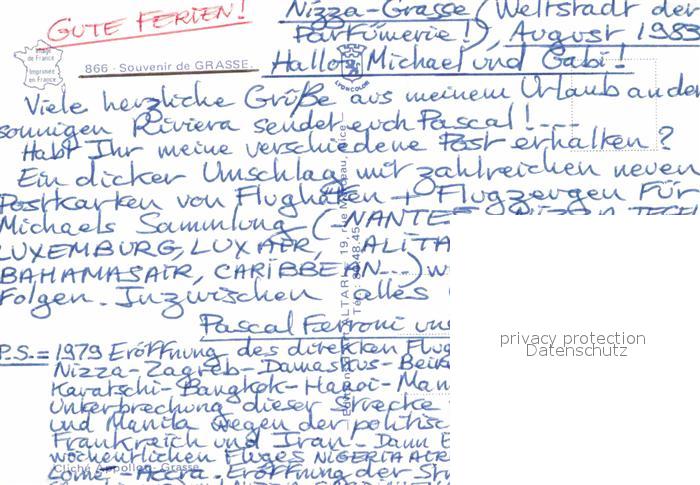 GUTE FERIEN!
Nizza-Grasse (Weltstadt der
Parfümerie!), August 1983
Image de France
Imprimée en France
866 - Souvenir de GRASSE.
LYONCOLOR
Hallo Michael und Gabi!
Viele herzliche Grüße aus meinem Urlaub an der
sonnigen Riviera sendet euch Pascal! ...
Habt Ihr meine verschiedene Post erhalten?
Ein dicker Umschlag mit zahlreichen neuen
Postkarten von Flughäfen + Flugzeugen für
Michaels Sammlung (-NANTES
LUXEMBURG, LUXAIR, ALITA
BAHAMASAIR, CARIBBEAN...) w
folgen. Inzwischen alles
Pascal Ferroni und
P.S.= 1979 Eröffnung des direkten Flug
Nizza-Zagreb-Damaskus-Beiru
Karatschi-Bangkok-Hanoi-Man
Unterbrechung dieser Strecke
und Manila wegen der politisc
Frankreich und Iran. Dann E
wöchentlichen Fluges NIGERIA AIR
Lomé-Accra. Eröffnung der Str
Cliché Appollon - Grasse
privacy protection
Datenschutz